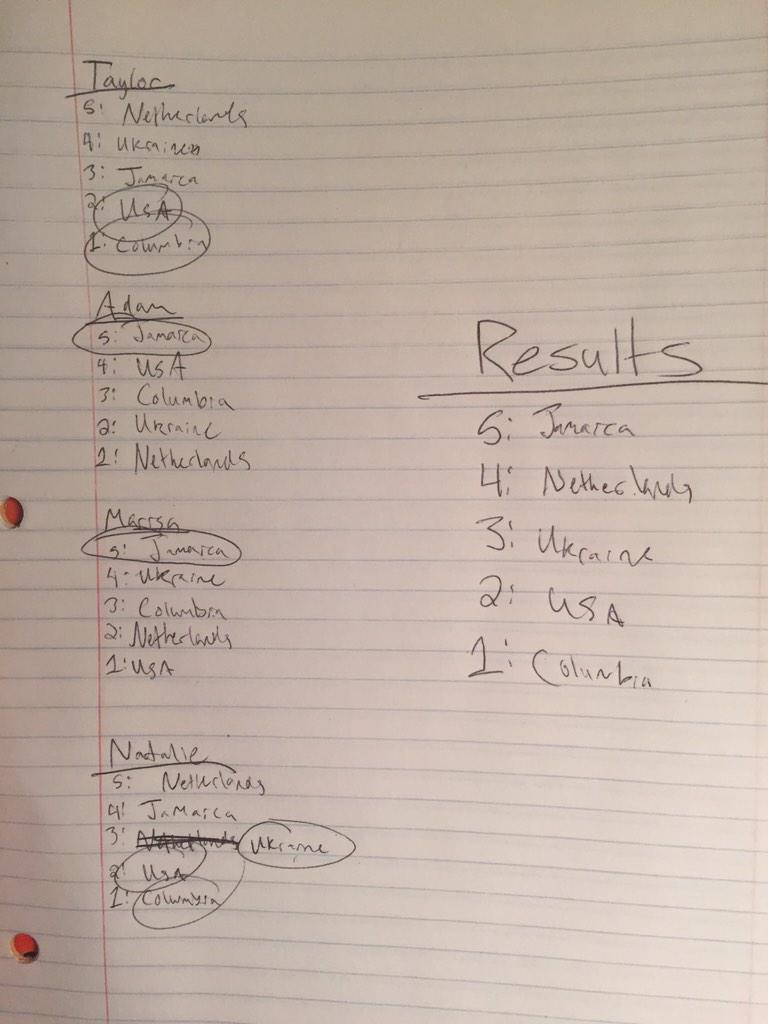 Taylor
5: Netherlands
4: Ukraine
3: Jamaica
2: USA
1: Columbia
Adam
5: Jamaica
4: USA
3: Columbia
2: Ukraine
1: Netherlands
Marisa
5: Jamaica
4: Ukraine
3: Columbia
2: Netherlands
1: USA
Natalie
5: Netherlands
4: Jamaica
3: Netherlands Ukraine
2: USA
1: Columbia
Results
5: Jamaica
4: Netherlands
3: Ukraine
2: USA
1: Columbia